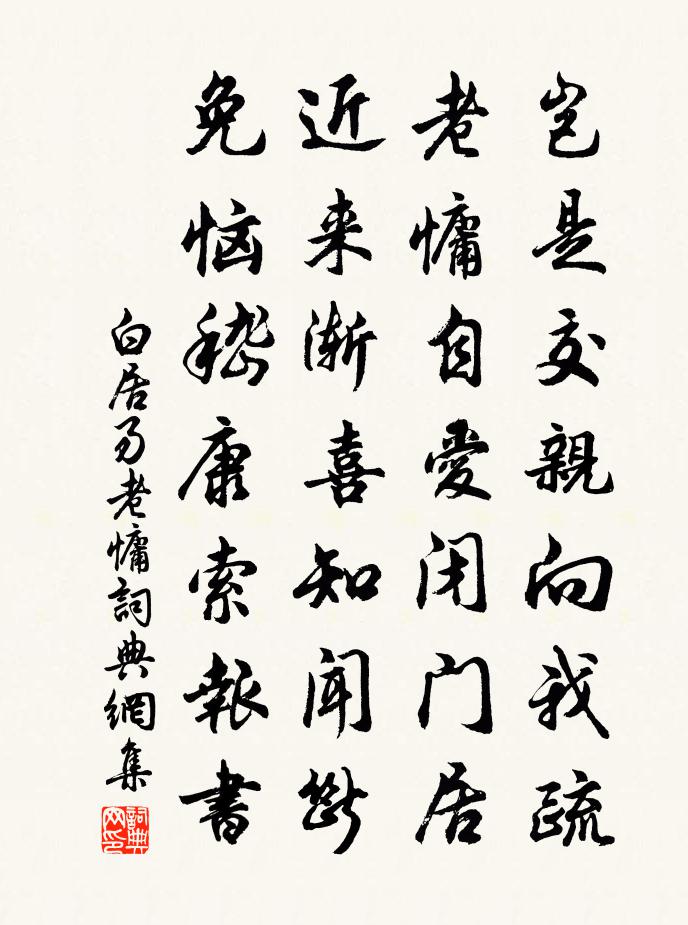 岂是交親向我疏
老慵自愛闭门居
近来渐喜知闻断
免恼嵇康索報書
白居易老慵詞典網集
詞典网印